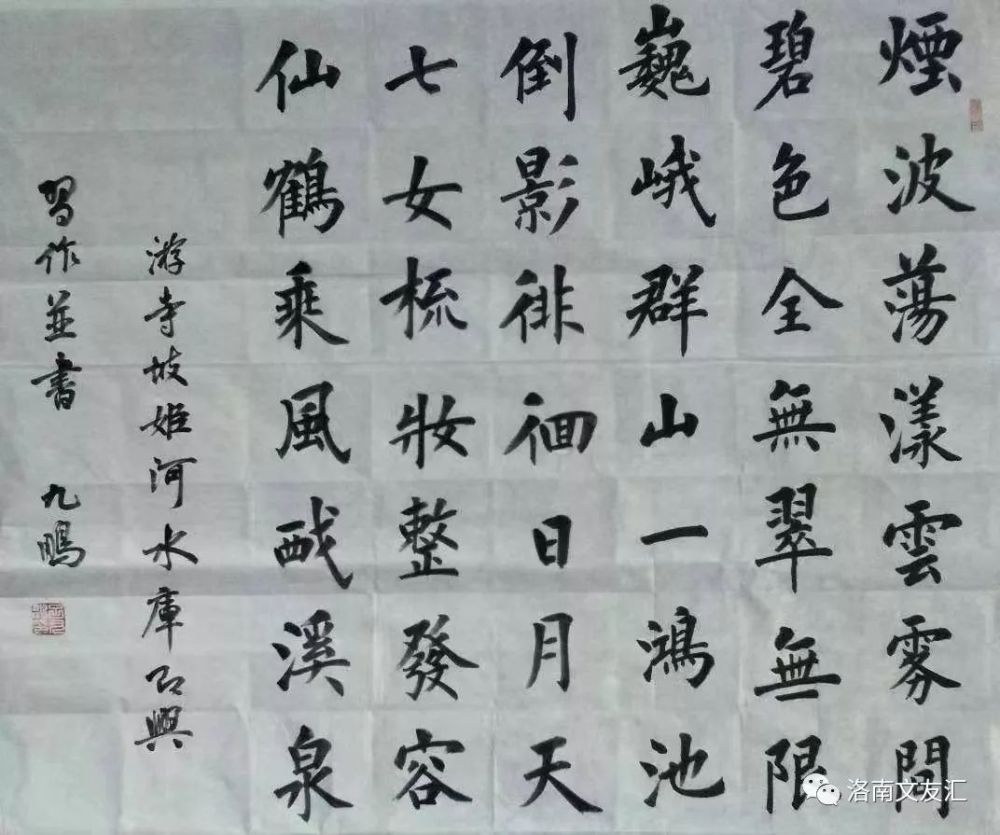 煙波蕩漾雲雾間
碧色全無翠無限
巍峨群山一鴻池
倒影徘徊日月天
七女梳妝整發容
仙鶴乘風溪泉
游寺坡姬河水庫即興
習作並書 九鵬
洛南文友汇